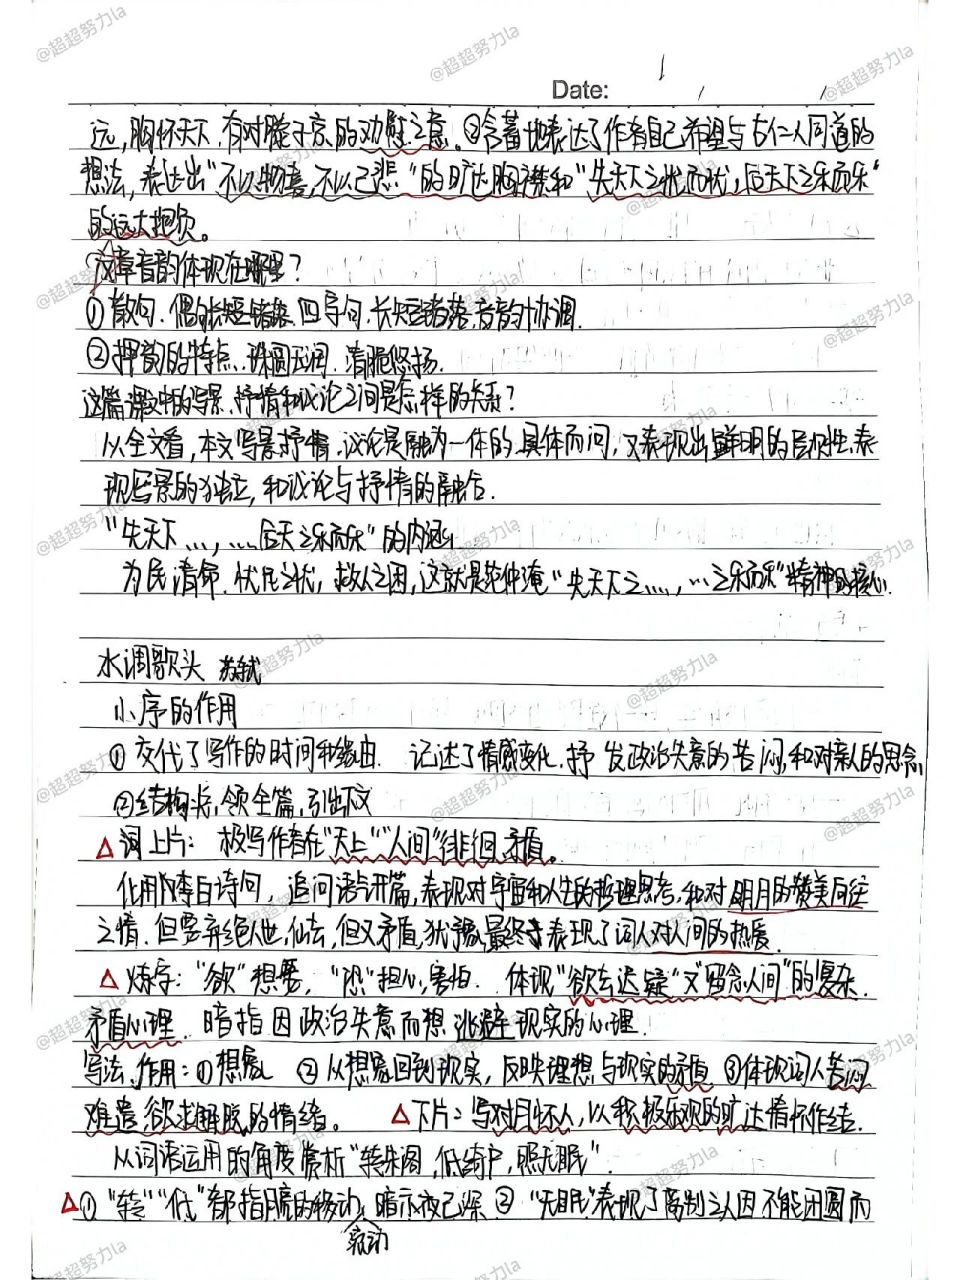 Date:
远,胸怀天下,有对滕子京的劝慰之意。②含蓄地表达了作者自己希望与古仁人同道的
想法,表达出"不以物喜,不以己悲"的旷达胸襟和"先天下之忧而忧,后天下之乐而乐"
的远大抱负。
文章音韵体现在哪里?
①散句、偶句长短错落、四字句、长短错落,音韵协调.
②押韵的特点、珠圆玉润、清脆悠扬.
这篇课文中的写景、抒情和议论之间是怎样的关系?
从全文看,本文写景抒情、议论是融为一体的,具体而问,又表现出鲜明的层次性,表
现写景的独立,和议论与抒情的融合.
"先天下...,...后天之乐而乐"的内涵
为民请命、忧民之忧,救人之困,这就是范仲淹"先天下之...,...之乐而乐"精神的核心.
水调歌头 苏轼
小序的作用
①交代了写作的时间和缘由. 记述了情感变化,抒发政治失意的苦闷,和对亲人的思念
②结构上,领全篇,引出下文
△词上片: 极写作者在"天上""人间"徘徊、矛盾。
化用李白诗句, 追问语气开篇,表现对宇宙和人生的哲理思考,和对明月的赞美向往
之情.但要弃绝人世,仙去,但又矛盾,犹豫,最终表现了词人对人间的热爱.
△炼字:"欲"想要, "恐"担心,害怕. 体现"欲去迟疑"又"留念人间"的复杂
矛盾心理. 暗指因政治失意而想逃避现实的心理.
写法、作用:①想象 ②从想象回到现实,反映理想与现实的矛盾 ③体现词人苦闷
难遣欲求解脱的情绪。 △下片:写对月怀人,以积极乐观的旷达情怀作结.
从词语运用的角度赏析"转朱阁,低绮户,照无眠".
△①"转""低"都指月亮的移动,暗示夜已深 ②"无眠"表现了离别之人因不能团圆而
流动
@超超努力la